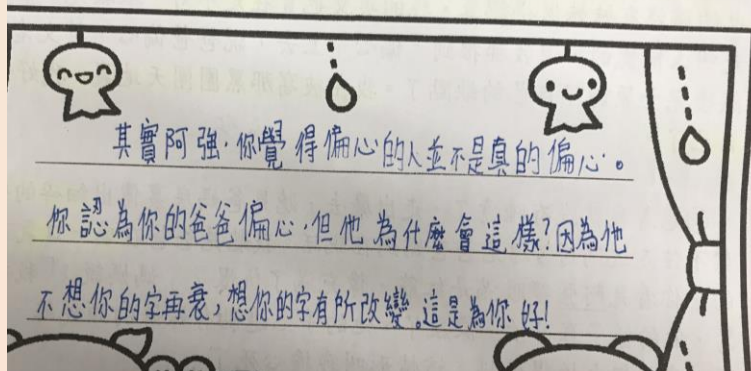 其實阿強,你覺得偏心的人並不是真的偏心。
你認為你的爸爸偏心,但他為什麼會這樣?因為他
不想你的字再衰,想你的字有所改變。這是為你好!